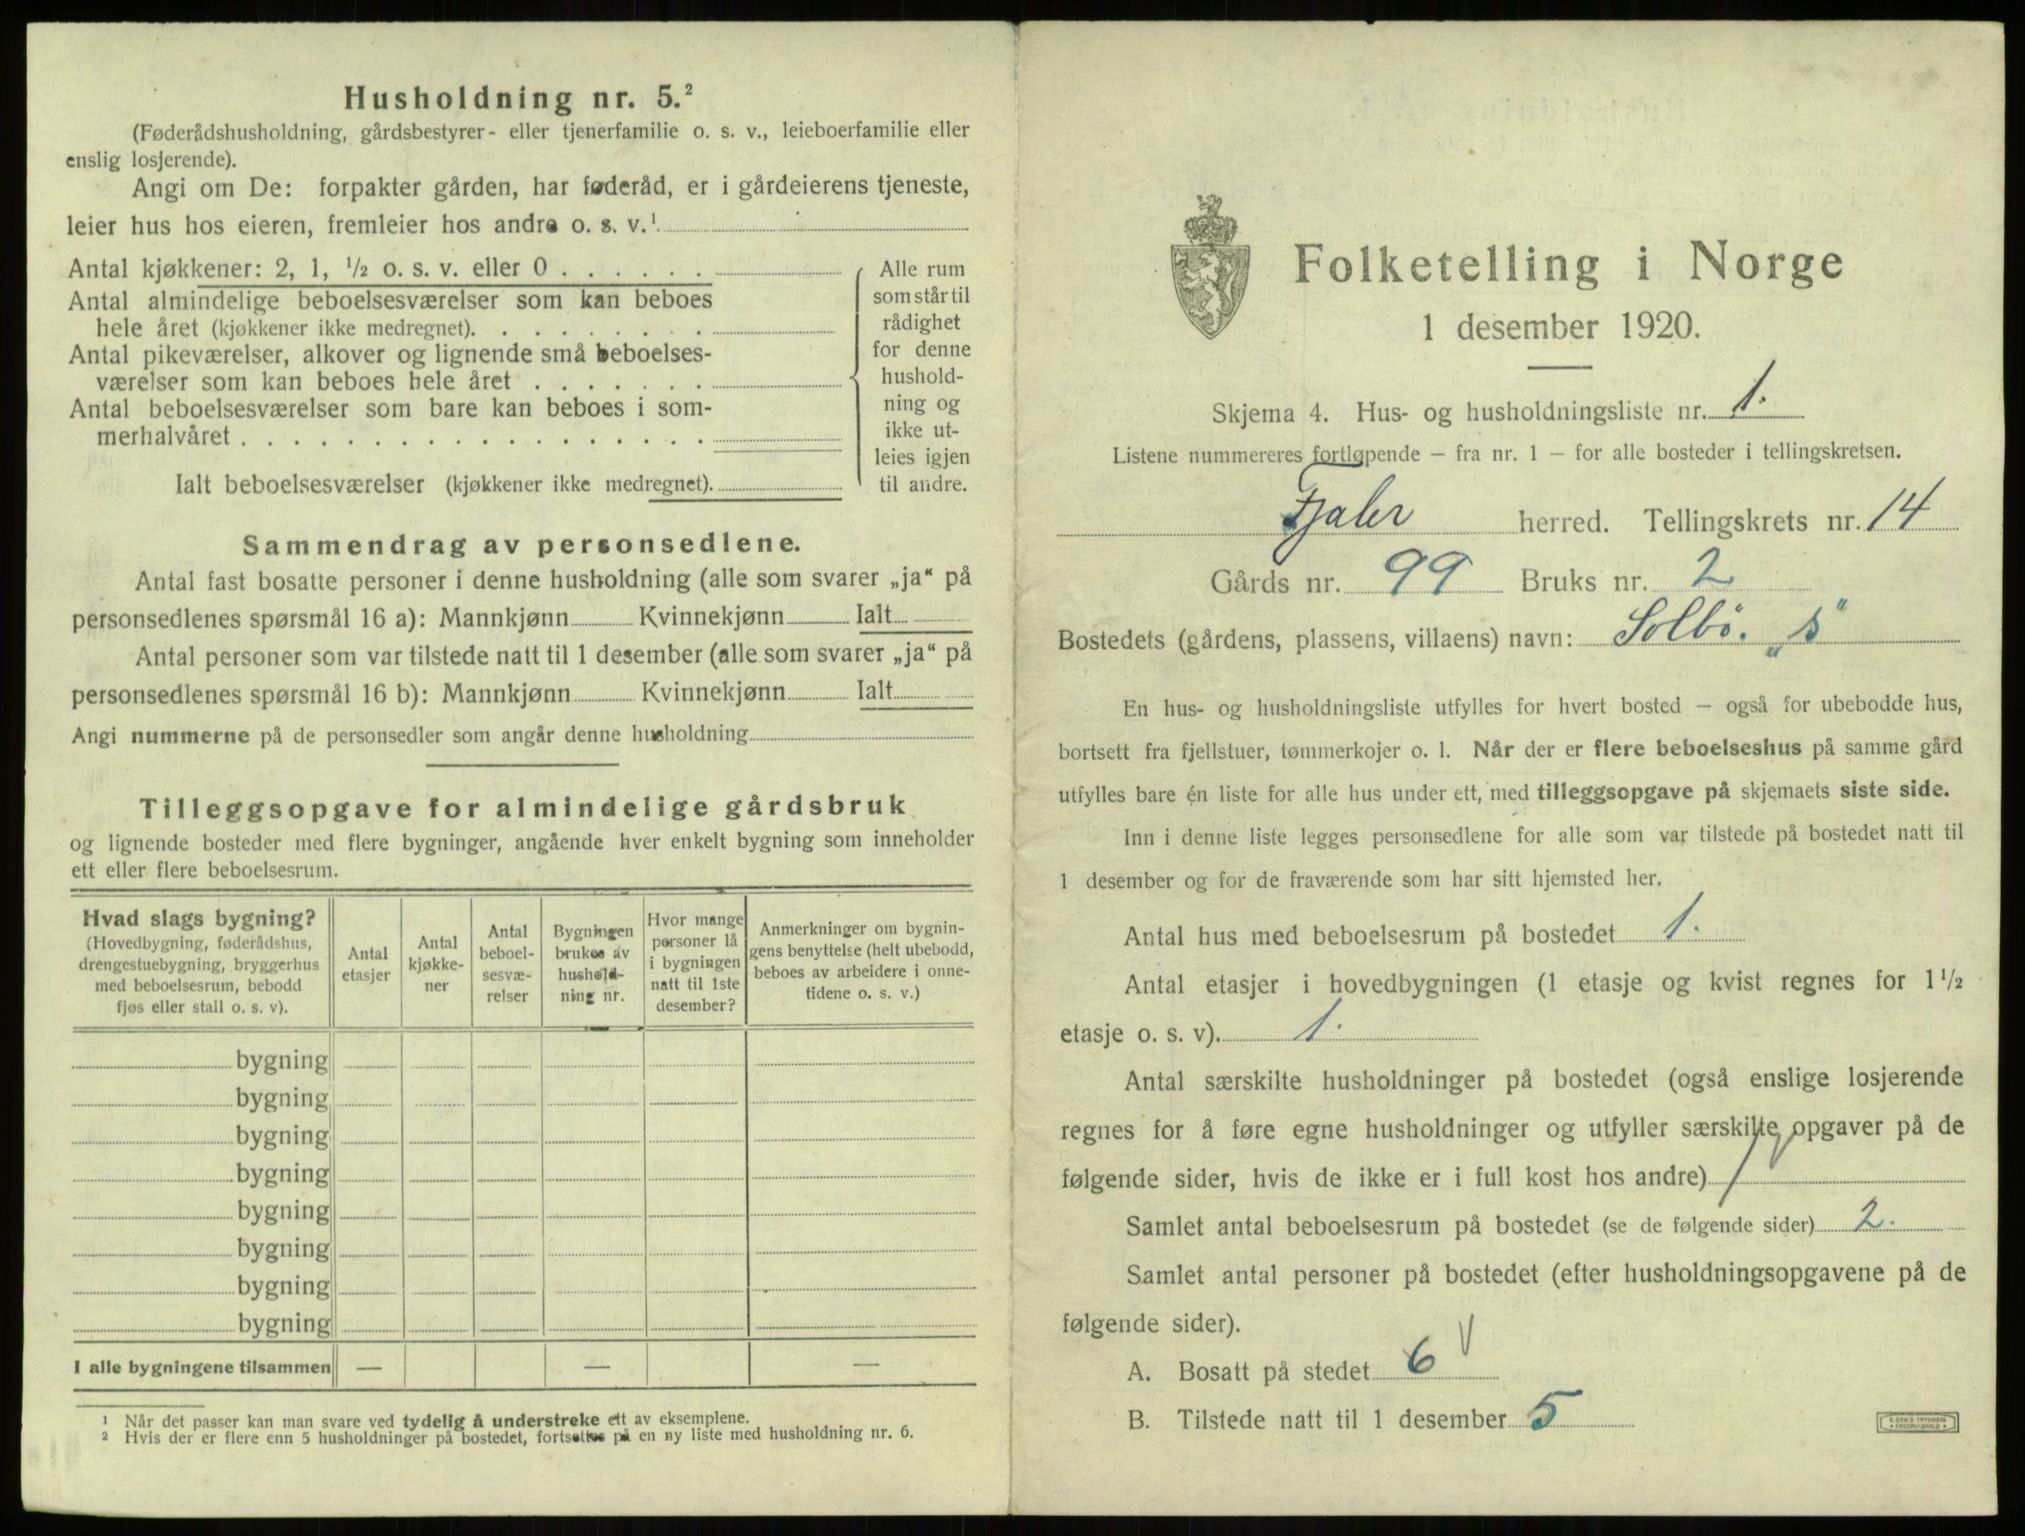 Husholdning nr. 5.²
(Føderådshusholdning, gårdsbestyrer- eller tjenerfamilie o. s. v., leieboerfamilie eller
enslig losjerende).
Angi om De: forpakter gården, har føderåd, er i gårdeierens tjeneste,
leier hus hos eieren, fremleier hos andre o. s. v.¹
Antal kjøkkener: 2, 1, ½ o. s. v. eller 0 . . . . . .
Antal almindelige beboelsesværelser som kan beboes
hele året (kjøkkener ikke medregnet). . . . . . . . .
Antal pikeværelser, alkover og lignende små beboelses-
værelser som kan beboes hele året . . . . . . .
Antal beboelsesværelser som bare kan beboes i som-
merhalvåret . . . . . . . . . . . . . . . . . .
Ialt beboelsesværelser (kjøkkener ikke medregnet).
Alle rum
som står til
rådighet
for denne
hushold-
ning og
ikke ut-
leies igjen
til andre.
Sammendrag av personsedlene.
Antal fast bosatte personer i denne husholdning (alle som svarer „ja“ på
personsedlenes spørsmål 16 a): Mannkjønn Kvinnekjønn Ialt
Antal personer som var tilstede natt til 1 desember (alle som svarer „ja“ på
personsedlenes spørsmål 16 b): Mannkjønn Kvinnekjønn Ialt
Angi nummerne på de personsedler som angår denne husholdning
Tilleggsopgave for almindelige gårdsbruk
og lignende bosteder med flere bygninger, angående hver enkelt bygning som inneholder
ett eller flere beboelsesrum.
Hvad slags bygning?
(Hovedbygning, føderådshus,
drengestuebygning, bryggerhus
med beboelsesrum, bebodd
fjøs eller stall o. s. v).
Antal
etasjer
Antal
kjøkke-
ner
Antal
beboel-
sesvæ-
relser
Bygningen
brukes av
hushold-
ning nr.
Hvor mange
personer lå
i bygningen
natt til 1ste
desember?
Anmerkninger om bygnin-
gens benyttelse (helt ubebodd,
beboes av arbeidere i onne-
tidene o. s. v.)
bygning
bygning
bygning
bygning
bygning
bygning
bygning
bygning
I alle bygningene tilsammen — — —
¹ Når det passer kan man svare ved tydelig å understreke ett av eksemplene.
² Hvis der er flere enn 5 husholdninger på bostedet, fortsettes på en ny liste med husholdning nr. 6.
Folketelling i Norge
1 desember 1920.
Skjema 4. Hus- og husholdningsliste nr. 1.
Listene nummereres fortløpende – fra nr. 1 – for alle bosteder i tellingskretsen.
Fjaler herred. Tellingskrets nr. 14
Gårds nr. 99 Bruks nr. 2
Bostedets (gårdens, plassens, villaens) navn: Solbö. „s“
En hus- og husholdningsliste utfylles for hvert bosted – også for ubebodde hus,
bortsett fra fjellstuer, tømmerkojer o. l. Når der er flere beboelseshus på samme gård
utfylles bare én liste for alle hus under ett, med tilleggsopgave på skjemaets siste side.
Inn i denne liste legges personsedlene for alle som var tilstede på bostedet natt til
1 desember og for de fraværende som har sitt hjemsted her.
Antal hus med beboelsesrum på bostedet 1.
Antal etasjer i hovedbygningen (1 etasje og kvist regnes for 1½
etasje o. s. v). 1.
Antal særskilte husholdninger på bostedet (også enslige losjerende
regnes for å føre egne husholdninger og utfyller særskilte opgaver på de
følgende sider, hvis de ikke er i full kost hos andre) 1
Samlet antal beboelsesrum på bostedet (se de følgende sider) 2.
Samlet antal personer på bostedet (efter husholdningsopgavene på de
følgende sider).
A. Bosatt på stedet 6
B. Tilstede natt til 1 desember 5